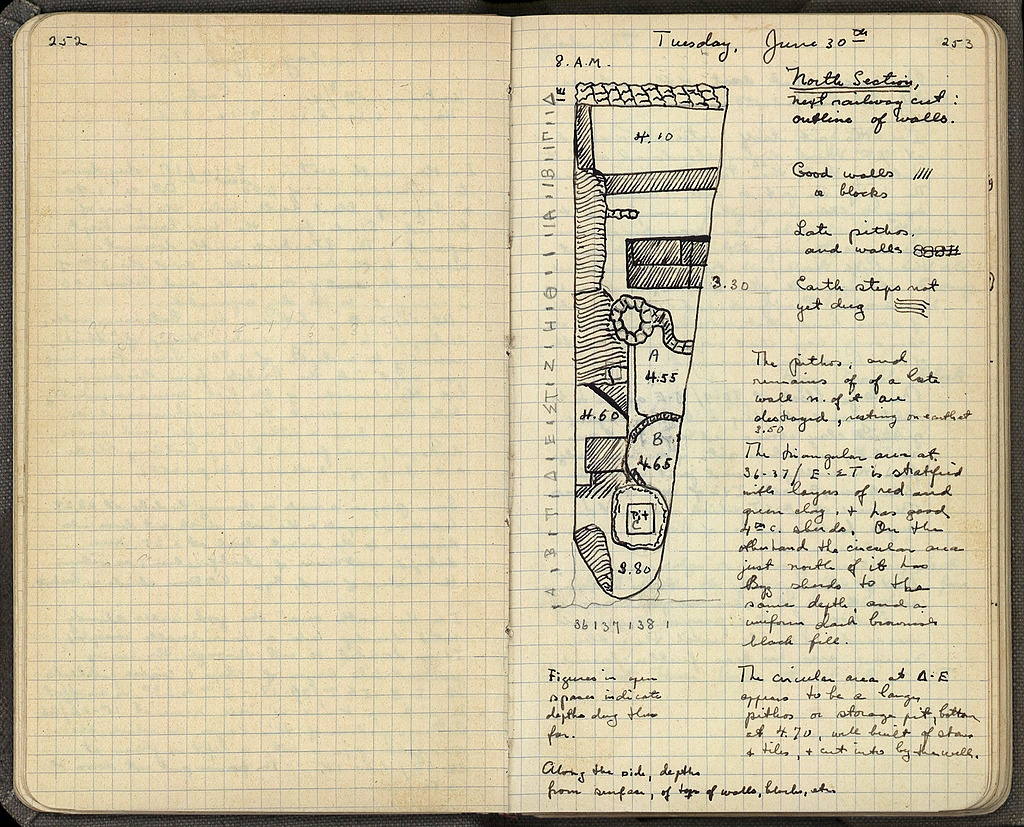 252
Tuesday, June 30th
253
8. A.M.
North Section,
next railway cut:
outline of walls.
4.10
Good walls
or blocks
Late pithos,
and walls
3.30
Earth steps not
yet dug
A
4.55
4.60
B
4.65
Pit
C
3.80
36 | 37 | 38 |
The pithos, and
remains of of a late
wall n. of it are
destroyed, resting on earth at
3.50
The triangular area at
36-37/E-ΣT is stratified
with layers of red and
green clay, + has good
4th c. sherds. On the
other hand the circular area
just north of it has
Byz sherds to the
same depth, and a
uniform dark brownish
black fill.
Figures in open
spaces indicate
depths dug thus
far.
The circular area at Δ-E
appears to be a large
pithos or storage pit, bottom
at 4.70, well built of stones
+ tiles, + cut into by the well.
Along the side, depths
from surface, of tops of walls, blocks, etc